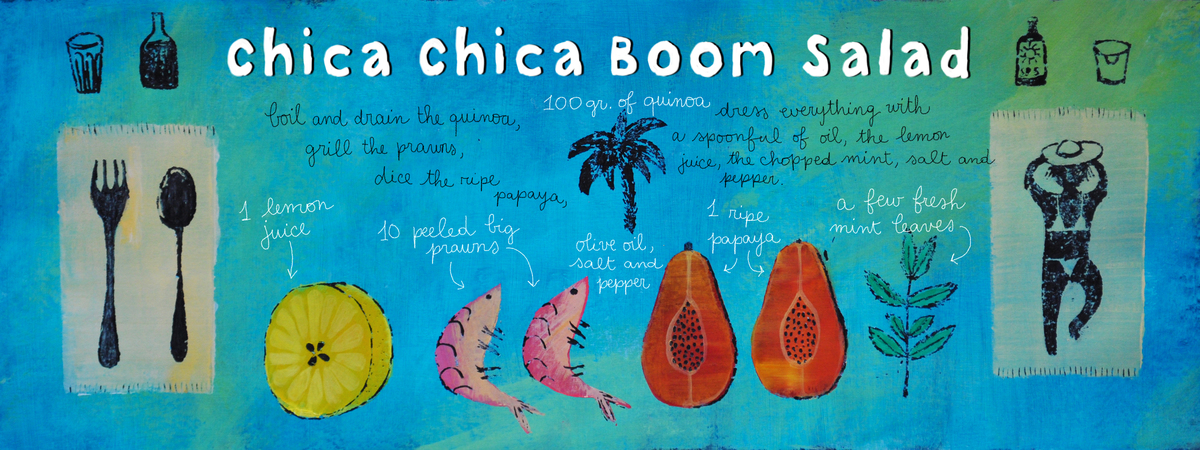 chica chica Boom Salad
100 gr. of quinoa
boil and drain the quinoa,
grill the prawns,
dice the ripe
papaya,
dress everything with
a spoonful of oil, the lemon
juice, the chopped mint, salt and
pepper.
1 lemon
juice
10 peeled big
prawns
olive oil,
salt and
pepper
1 ripe
papaya
a few fresh
mint leaves